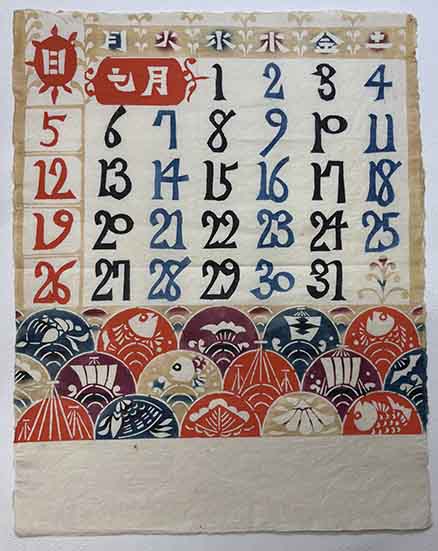 日 月 火 水 木 金 土
七月 1 2 3 4
5 6 7 8 9 10 11
12 13 14 15 16 17 18
19 20 21 22 23 24 25
26 27 28 29 30 31